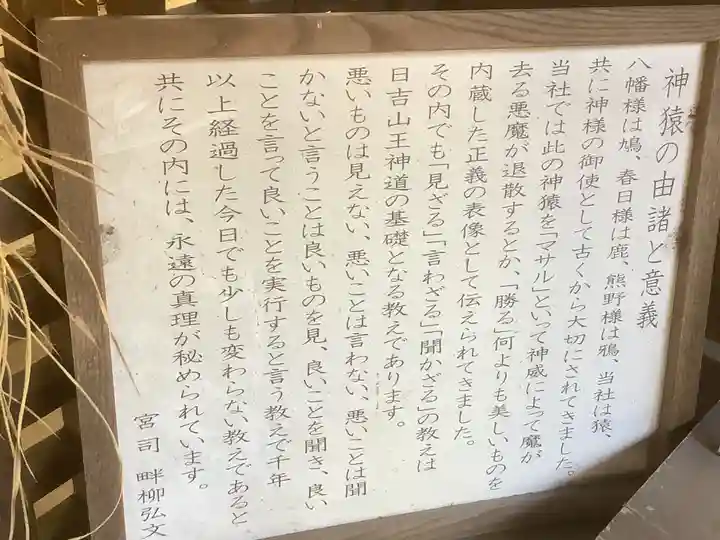 神猿の由諸と意義
八幡様は鳩、春日様は鹿、熊野様は鴉、当社は猿、
共に神様の御使として古くから大切にされてきました。
当社では此の神猿を「マサル」といって神威によって魔が
去る悪魔が退散するとか、「勝る」何よりも美しいものを
内蔵した正義の表像として伝えられてきました。
その内でも「見ざる」「言わざる」「聞かざる」の教えは
日吉山王神道の基礎となる教えであります。
悪いものは見えない、悪いことは言わない、悪いことは聞
かないと言うことは良いものを見、良いことを聞き、良い
ことを言って良いことを実行すると言う教えで千年
以上経過した今日でも少しも変わらない教えであると
共にその内には、永遠の真理が秘められています。
宮司 畔柳弘文